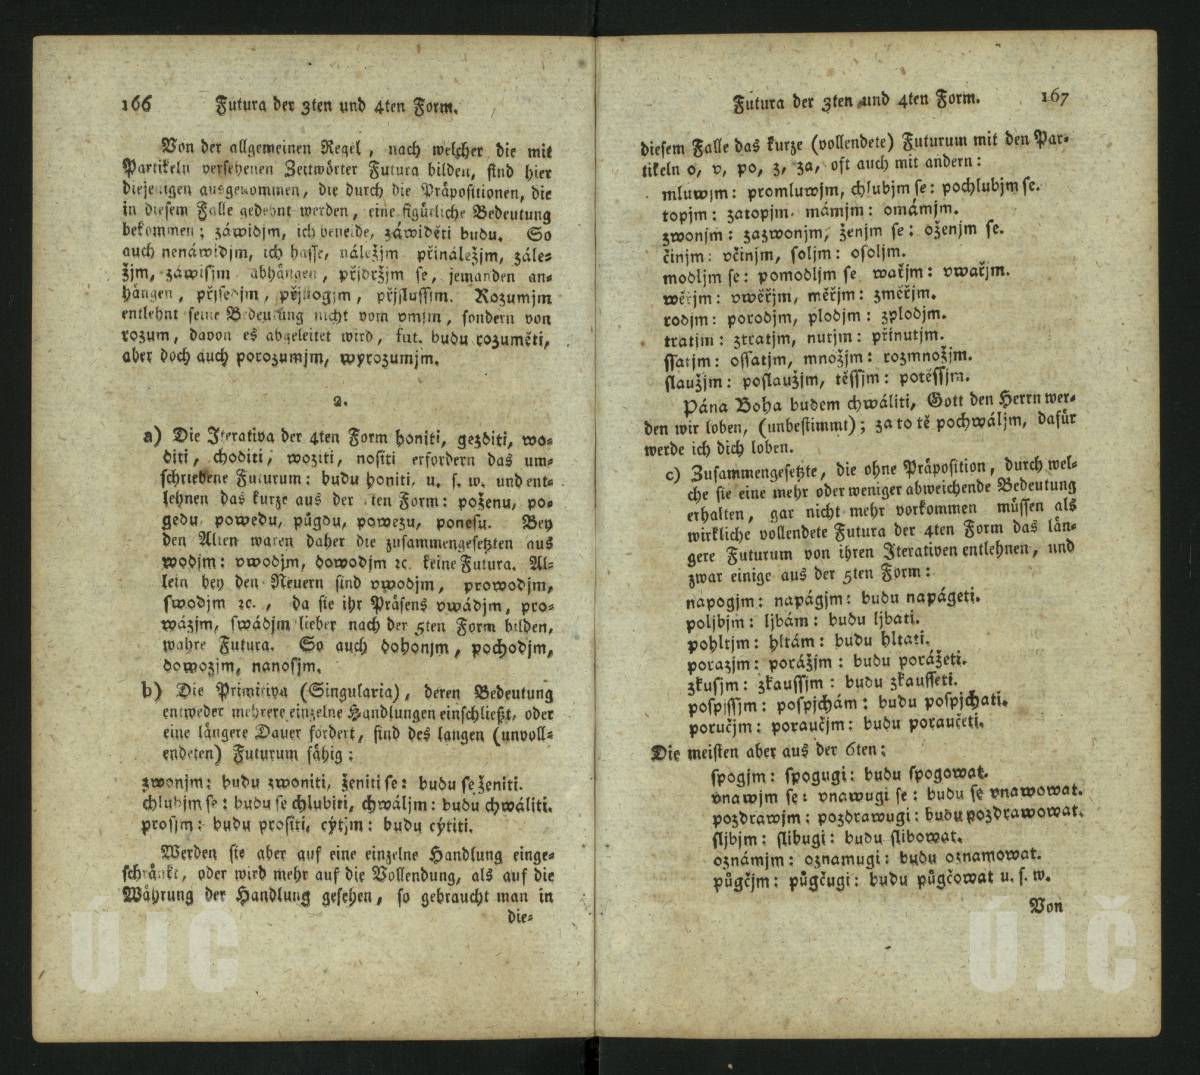 166 Futura der 3ten und 4ten Form.
Von der allgemeinen Regel, nach welcher die mit
Partikeln versehenen Zeitwörter Futura bilden, sind hier
diejenigen ausgenommen, die durch die Präpositionen, die
in diesem Falle gedehnt werden, eine figürliche Bedeutung
bekommen; záwidjm, ich beneide, záwiděti budu. So
auch nenáwidjm, ich hasse, náležjm přináležjm, zále=
žjm, záwisjm abhängen, přjdržjm se, jemanden an=
hängen, přjsedjm, přjstogjm, přjslussjm. Rozumjm
entlehnt seine Bedeutung nicht vom vmjm, sondern von
rozum, davon es abgeleitet wird, fut. budu rozuměti,
aber doch auch porozumjm, wyrozumjm.
2.
a) Die Iterativa der 4ten Form honiti, gezditi, wo=
diti, choditi, woziti, nositi erfordern das um=
schriebene Futurum: budu honiti, u. s. w. und ent=
lehnen das kurze aus der ten Form: poženu, po=
gedu powedu, půgdu, powezu, ponesu. Bey
den Alten waren daher die zusammengesetzten aus
wodjm: vwodjm, dowodjm ꝛc. keine Futura. Al=
lein bey den Neuern sind vwodjm, prowodjm,
swodjm ꝛc., da sie ihr Präsens vwádjm, pro=
wázjm, swádjm lieber nach der 5ten Form bilden,
wahre Futura. So auch dohonjm, pochodjm,
dowozjm, nanosjm.
b) Die Primitiva (Singularia), deren Bedeutung
entweder mehrere einzelne Handlungen einschließt, oder
eine längere Dauer fordert, sind des langen (unvoll=
endeten) Futurum fähig:
zwonjm: budu zwoniti, ženiti se: budu se ženiti.
chlubjm se: budu se chlubiti, chwáljm: budu chwáliti.
prosjm: budu prositi, cýtjm: budu cýtiti.
Werden sie aber auf eine einzelne Handlung einge=
schränkt, oder wird mehr auf die Vollendung, als auf die
Währung der Handlung gesehen, so gebraucht man in
die=
Futura der 3ten und 4ten Form. 167
diesem Falle das kurze (vollendete) Futurum mit den Par=
tikeln o, v, po, z, za, oft auch mit andern:
mluwjm: promluwjm, chlubjm se: pochlubjm se.
topjm: zatopjm. mámjm: omámjm.
zwonjm: zazwonjm, ženjm se: oženjm se.
činjm: včinjm, soljm: osoljm.
modljm se: pomodljm se wařjm: vwařjm.
wěřjm: vwěřjm, měřjm: změřjm.
rodjm: porodjm, plodjm: zplodjm.
tratjm: ztratjm, nutjm: přinutjm.
ssatjm: ossatjm, množjm: rozmnožjm.
slaužjm: poslaužjm, těssjm: potěssjm.
Pána Boha budem chwáliti, Gott den Herrn wer=
den wir loben, (unbestimmt); za to tě pochwáljm, dafür
werde ich dich loben.
c) Zusammengesetzte, die ohne Präposition, durch wel=
che sie eine mehr oder weniger abweichende Bedeutung
erhalten, gar nicht mehr vorkommen müssen als
wirkliche vollendete Futura der 4ten Form das län=
gere Futurum von ihren Iterativen entlehnen, und
zwar einige aus der 5ten Form:
napogjm: napágjm: budu napágeti.
poljbjm: ljbám: budu ljbati.
pohltjm: hltám: budu hltati.
porazjm: porážjm: budu porážeti.
zkusjm: zkaussjm: budu zkausseti.
pospjssjm: pospjchám: budu pospjchati.
poručjm: poraučjm: budu poraučeti.
Die meisten aber aus der 6ten:
spogjm: spogugi: budu spogowat.
vnawjm se: vnawugi se: budu se vnawowat.
pozdrawjm: pozdrawugi: budu pozdrawowat.
sljbjm: slibugi: budu slibowat.
oznámjm: oznamugi: budu oznamowat.
půgčjm: půgčugi: budu půgčowat u. s. w.
Von
ÚJČ
ÚJČ